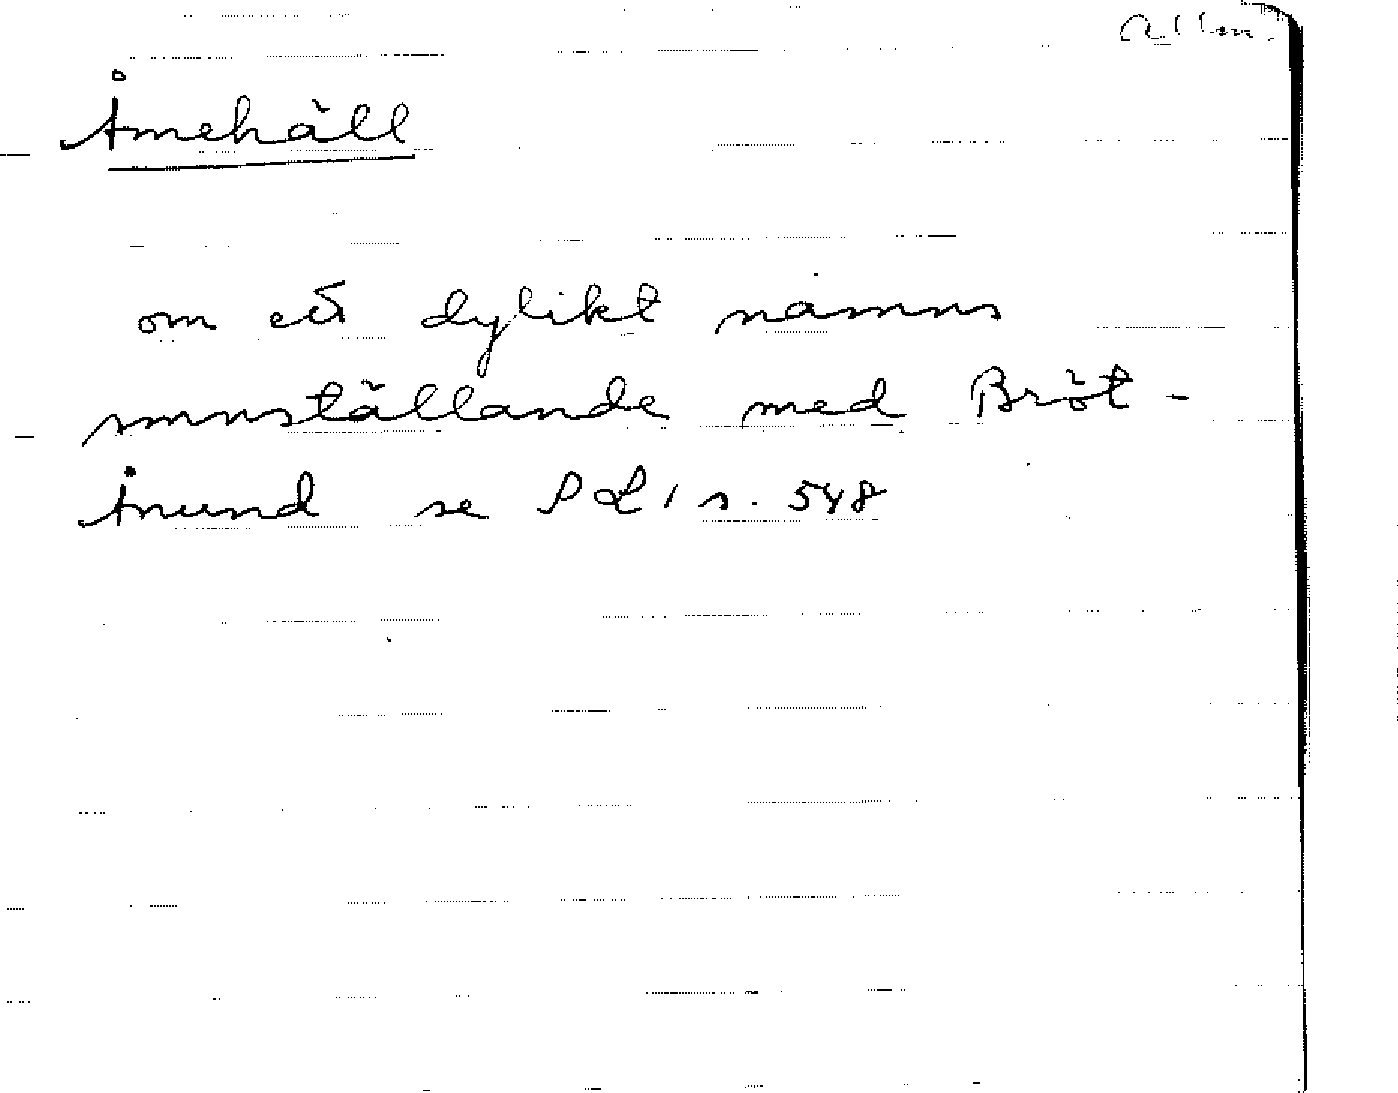 Allm.
Åmehäll
om ett dylikt namns
smnställande med Bröt-
Anund se PL 1 s. 548